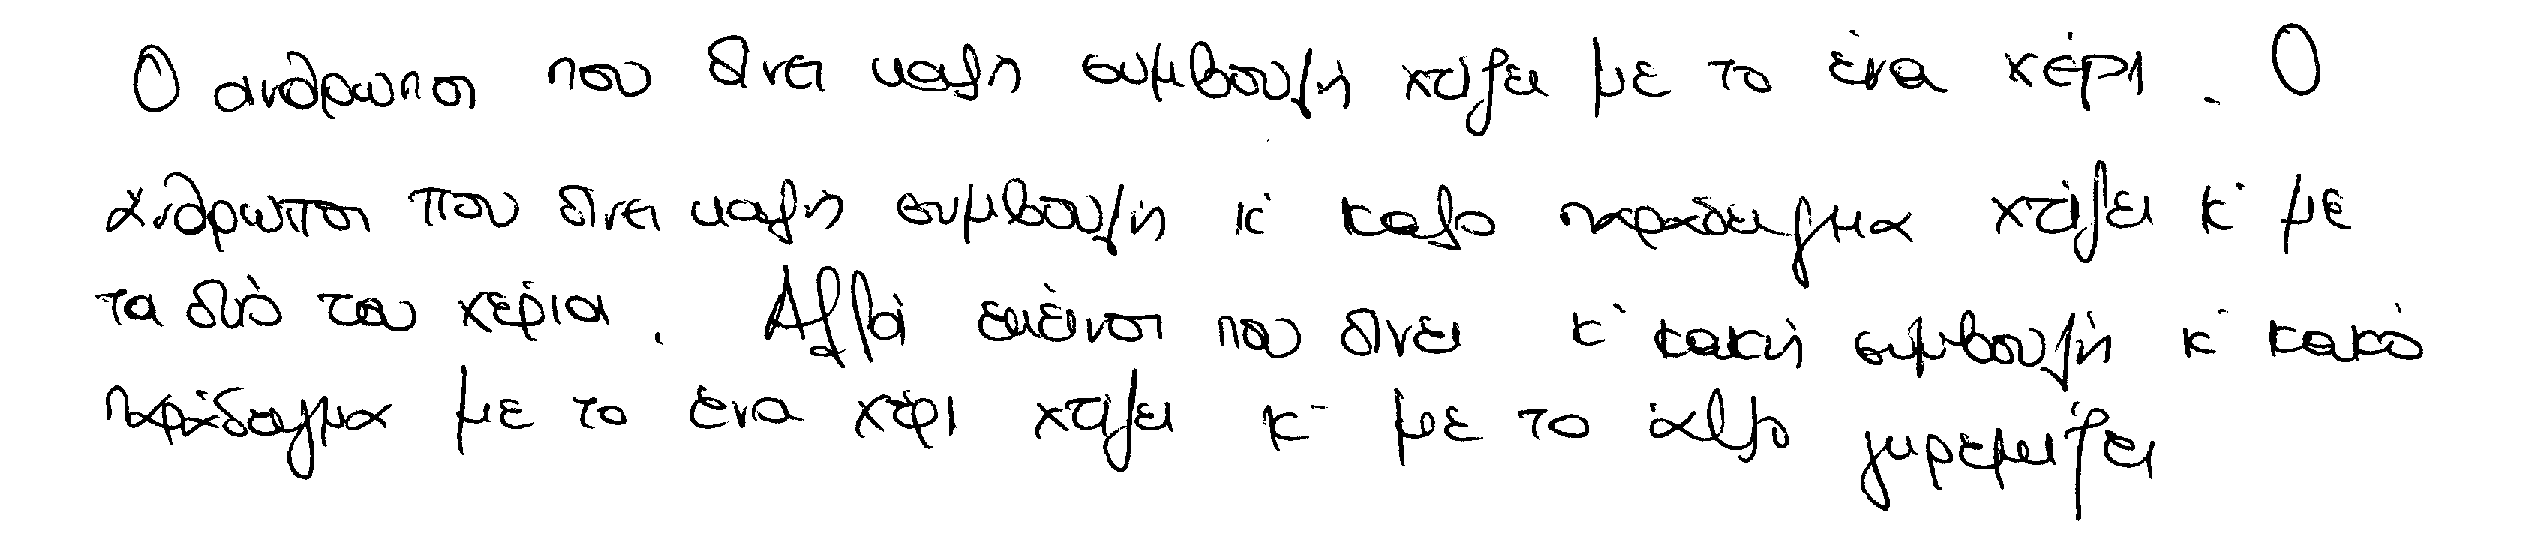 Ο ανθρωπος που δινει καλη συμβουλή χτίζει με το ένα χέρι. Ο
άνθρωπος που δινει καλη συμβουλή κ' καλο παραδειγμα χτίζει κ' με
τα δυό του χέρια. Αλλά εκείνος που δινει κ' κακή συμβουλή κ' κακό
παράδειγμα με το ένα χέρι χτίζει κ' με το άλλο γκρεμίζει